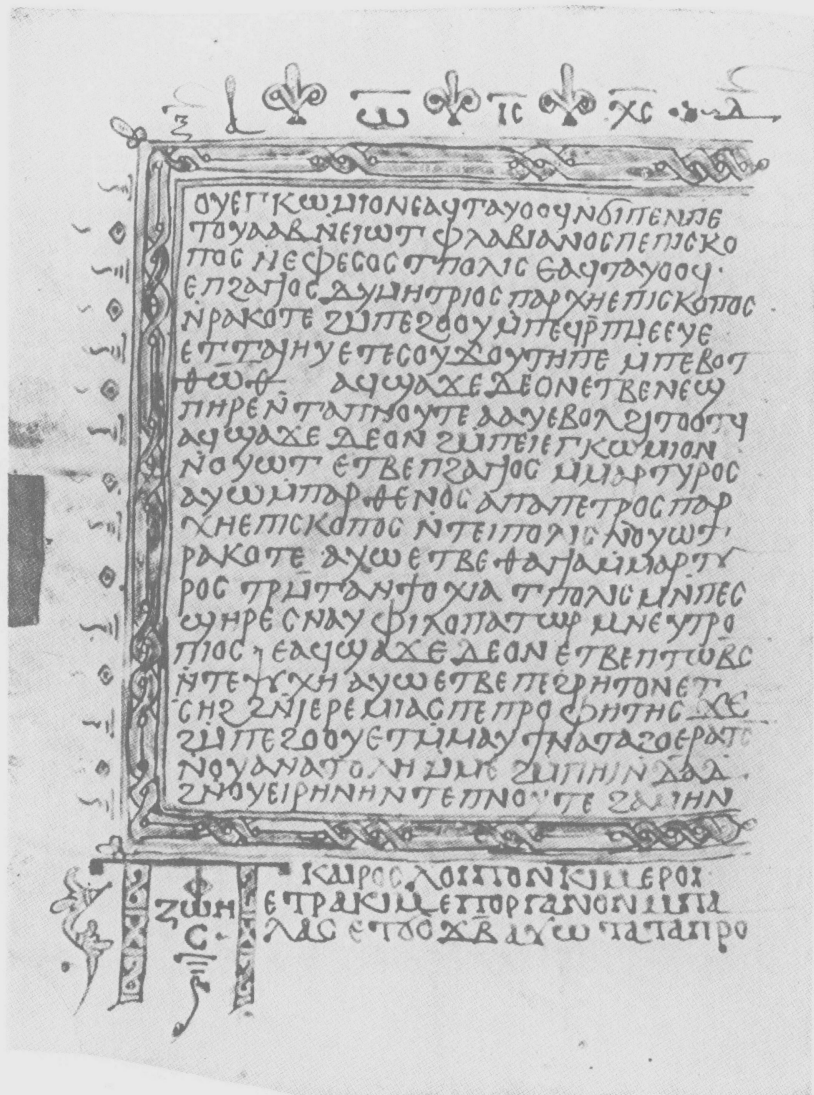 ⲱ ⲓ̅ⲥ̅ ⲭ̅ⲥ̅
ⲟⲩⲉⲅⲕⲱⲙⲓⲟⲛⲉⲁϥⲧⲁⲩⲟⲟϥⲛϭⲓⲡⲉⲛⲡⲉ
ⲧⲟⲩⲁⲁⲃⲛⲉⲓⲱⲧ ⲫⲗⲁⲃⲓⲁⲛⲟⲥⲡⲉⲡⲓⲥⲕⲟ
ⲡⲟⲥ ⲛⲉⲫⲉⲥⲟⲥ ⲧⲡⲟⲗⲓⲥ ⲉⲁϥⲧⲁⲩⲟⲟϥ·
ⲉⲡϩⲁⲅⲓⲟⲥ ⲇⲩⲙⲏⲧⲣⲓⲟⲥ ⲡⲁⲣⲭⲏⲉⲡⲓⲥⲕⲟⲡⲟⲥ
ⲛ̄ⲣⲁⲕⲟⲧⲉ ϩⲙ̄ⲡⲉϩⲟⲟⲩ ⲙ̄ⲡⲉϥⲣ̄ⲡⲙⲉⲉⲩⲉ
ⲉⲧⲧⲁⲓⲏⲩ ⲉⲧⲉⲥⲟⲩϫⲟⲩⲧⲏⲡⲉ ⲙⲡⲉⲃⲟⲧ
ⲑⲱ̅ⲑ ⲁϥϣⲁϫⲉ ⲇⲉⲟⲛⲉⲧⲃⲉⲛⲉϣ
ⲡⲏⲣⲉ ⲛ̄ⲧⲁⲡⲛⲟⲩⲧⲉ ⲁⲁⲩⲉⲃⲟⲗϩⲓⲧⲟⲟⲧϥ
ⲁϥϣⲁϫⲉ ⲇⲉⲟⲛ ϩⲙ̄ⲡⲉⲓⲉⲅⲕⲱⲙⲓⲟⲛ
ⲛⲟⲩⲱⲧ ⲉⲧⲃⲉⲡϩⲁⲅⲓⲟⲥ ⲙⲙⲁⲣⲧⲩⲣⲟⲥ
ⲁⲩⲱⲙⲡⲁⲣⲑⲉⲛⲟⲥ ⲁⲡⲁⲡⲉⲧⲣⲟⲥ ⲡⲁⲣ
ⲭⲏⲉⲡⲓⲥⲕⲟⲡⲟⲥ ⲛ̄ⲧⲉⲓⲡⲟⲗⲓⲥ ⲛⲟⲩⲱⲧ·
ⲣⲁⲕⲟⲧⲉ ⲁⲩⲱ ⲉⲧⲃⲉ ⲑⲁⲅⲓⲁⲙⲙⲁⲣⲧⲩ
ⲣⲟⲥ ⲧⲣⲙ̄ⲧⲁⲛϯⲟⲭⲓⲁ ⲧⲡⲟⲗⲓⲥ ⲙⲛ̄ⲡⲉⲥ
ϣⲏⲣⲉ ⲥⲛⲁⲩ ⲫⲓⲗⲟⲡⲁⲧⲱⲣ ⲙⲛⲉⲩⲧⲣⲟ
ⲡⲓⲟⲥ· ⲉⲁϥϣⲁϫⲉ ⲇⲉⲟⲛ ⲉⲧⲃⲉⲡⲧⲱⲃ̄ⲥ
ⲛ̄ⲧⲉⲯⲩⲭⲏ ⲁⲩⲱ ⲉⲧⲃⲉ ⲡⲉϩⲣⲏⲧⲟⲛ ⲉⲧ
ⲥⲏϩ ϩⲛ̄ⲓⲉⲣⲉⲙⲓⲁⲥ ⲡⲉⲡⲣⲟⲫⲏⲧⲏⲥ ϫⲉ
ϩⲙ̄ⲡⲉϩⲟⲟⲩ ⲉⲧⲙ̄ⲙⲁⲩ ϯⲛⲁⲧⲁϩⲟⲉⲣⲁⲧϥ
ⲛⲟⲩⲁⲛⲁⲧⲟⲗⲏ ⲙⲙⲉ ϩⲙ̄ⲡⲏⲓ ⲛ̄ⲇⲁⲇ·
ϩⲛⲟⲩⲉⲓⲣⲏⲛⲏ ⲛⲧⲉⲡⲛⲟⲩⲧⲉ ϩⲁⲙⲏⲛ
ⲕⲁⲓⲣⲟⲥ ⲗⲟⲓⲡⲟⲛ ⲕⲓⲙ ⲉⲣⲟⲓ
ⲉⲧⲣⲁⲕⲓⲙ ⲉⲡⲟⲣⲅⲁⲛⲟⲛ ⲙⲡⲁ
ⲗⲁⲥ ⲉⲧϭⲟϫⲃ̄ ⲁⲩⲱ ⲧⲁⲧⲁⲡⲣⲟ
ⲍⲱⲏ
ⲥ